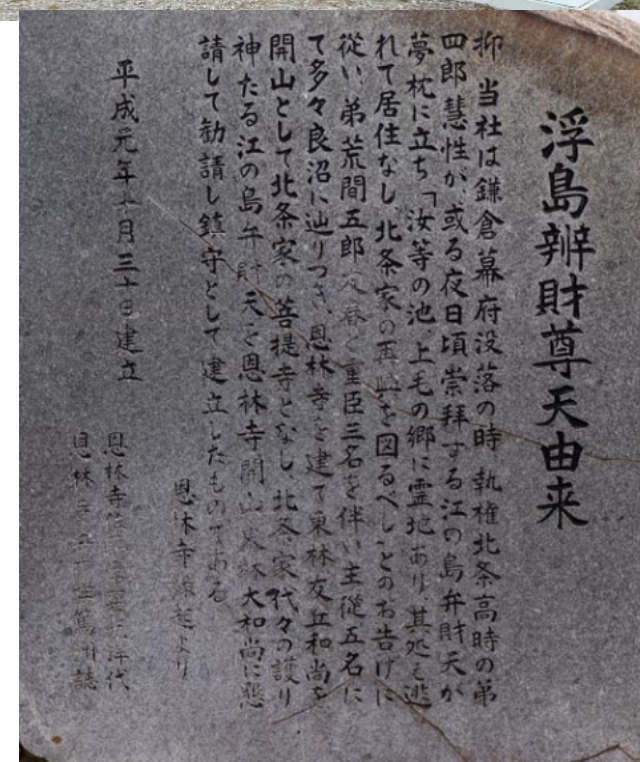 浮島辨財尊天由来
抑 当社は鎌倉幕府没落の時 執権北条高時の弟
四郎慧性が 或る夜日頃崇拝する江の島弁財天が
夢枕に立ち「汝等の池、上毛の郷に霊地あり 其処え逃
れて居住なし 北条家の再興を図るべし」とのお告げに
従い 弟荒間五郎 重臣三名を伴い 主従五名に
て多々良沼に辿りつき、恩林寺を建て東林友丘和尚を
開山として北条家の菩提寺となし、北条家代々の護り
神たる江の島弁財天を恩林寺開山 大和尚に懇
請して勧請し鎮守として建立したものである
恩林寺縁起より
平成元年十月三十日建立
恩林寺 代
恩林寺 誌